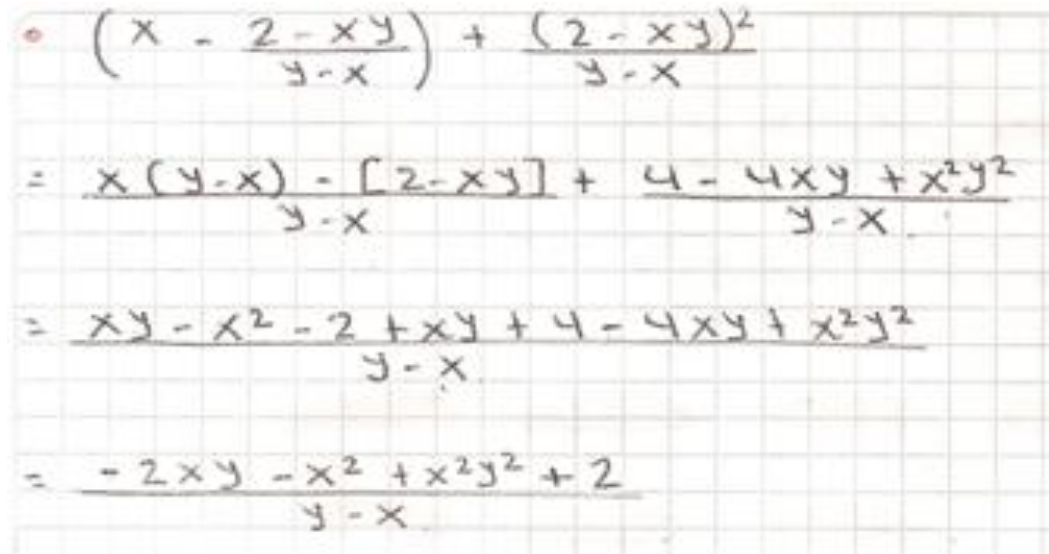 (x - (2 - xy)/(y - x)) + (2 - xy)²/(y - x)
= (x(y-x) - [2-xy])/(y - x) + (4 - 4xy + x²y²)/(y - x)
= (xy - x² - 2 + xy + 4 - 4xy + x²y²)/(y - x)
= (-2xy - x² + x²y² + 2)/(y - x)